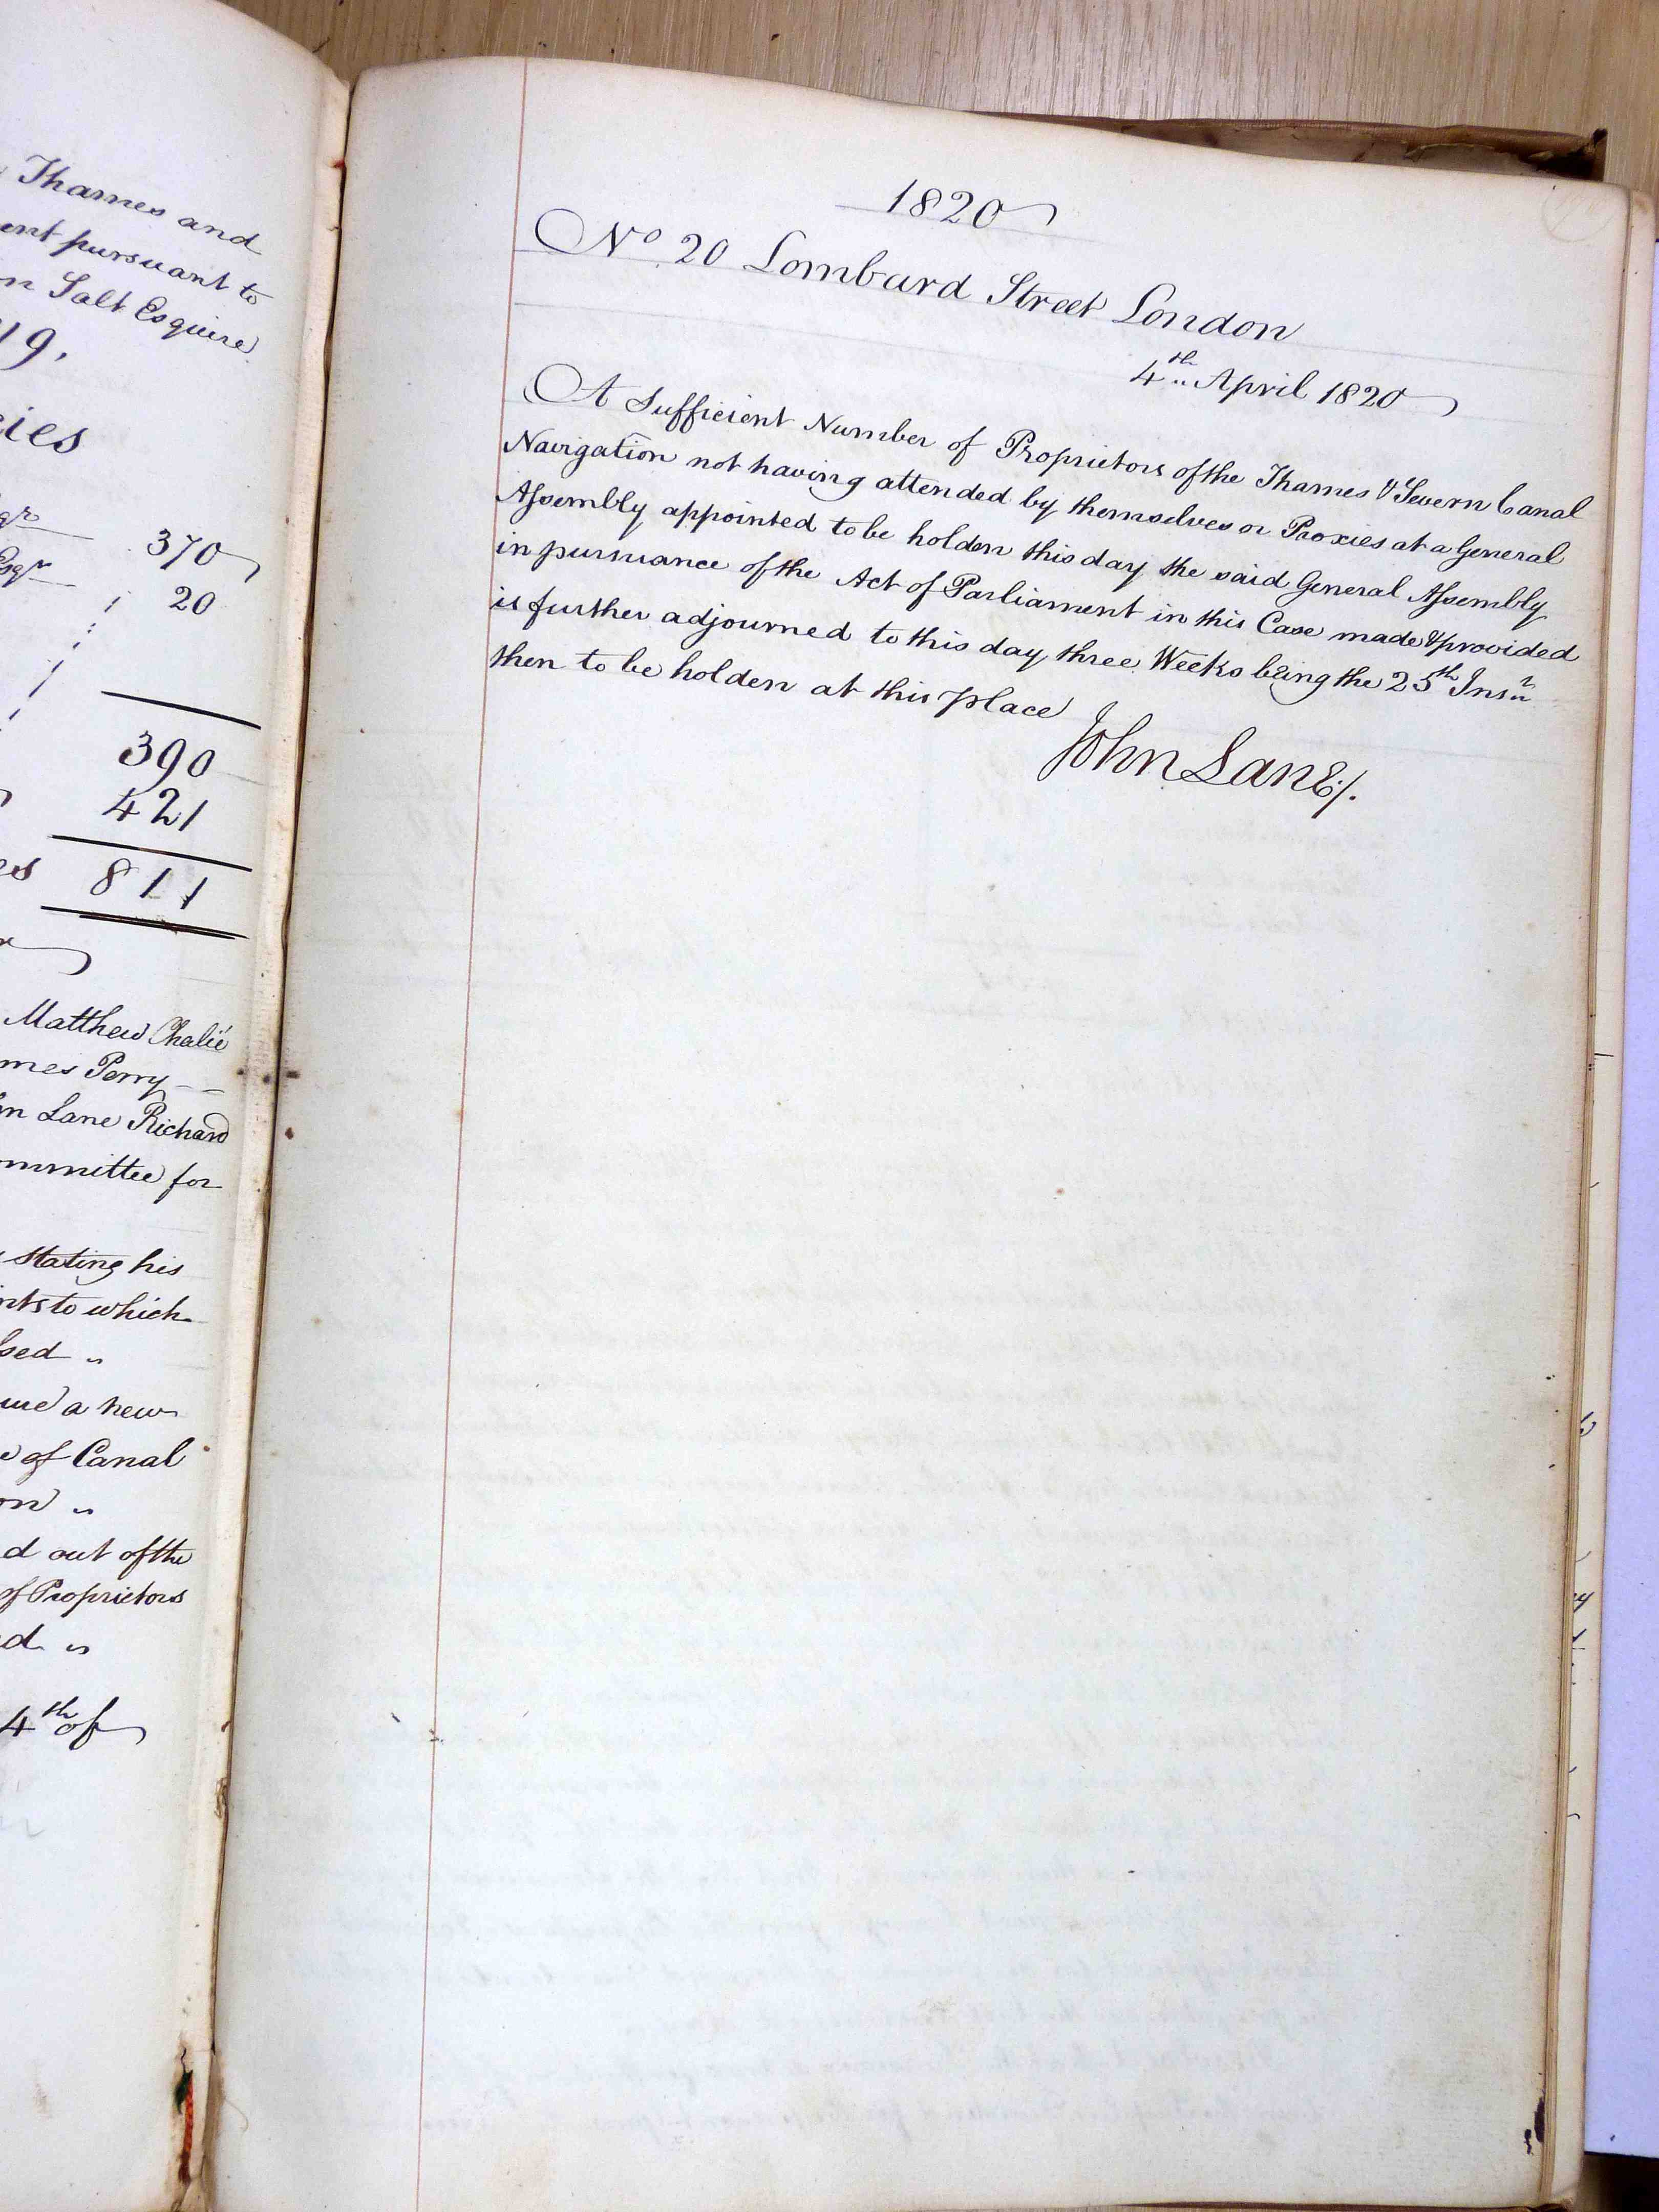 Thames and
ent pursuant to
n Salt Esquire
19,
cies
370
Esqr 20
390
421
es 811
Matthew Chalié
mes Perry
n Lane Richard
ommittee for
stating his
nts to which
sed "
a new
of Canal
on "
d out of the
of Proprietors
d "
4th of
1820
No. 20 Lombard Street London
4th April 1820
A Sufficient Number of Proprietors of the Thames & Severn Canal
Navigation not having attended by themselves or Proxies at a General
Assembly appointed to be holden this day the said General Assembly
in pursuance of the Act of Parliament in this Case made & provided
is further adjourned to this day three Weeks being the 25th Inst
then to be holden at this place
John Lane